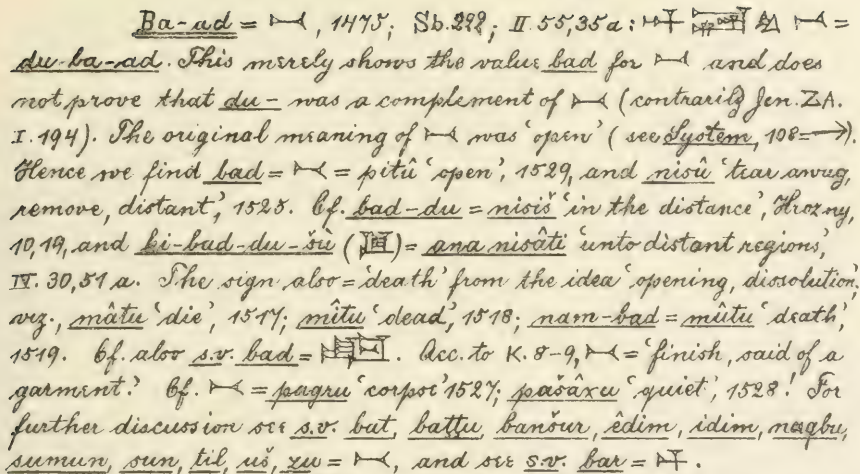 Ba-ad = 𒁁, 1475; Sb. 292; II. 55,35a: 𒁁 =
du-ba-ad. This merely shows the value bad for 𒁁 and does
not prove that du- was a complement of 𒁁 (contrarily Jen. ZA.
I. 194). The original meaning of 𒁁 was 'open' (see System, 108 →).
Hence we find bad = 𒁁 = pitû 'open', 1529, and nisû 'tear away,
remove, distant', 1525. Cf. bad-du = nisiš 'in the distance', Hrozny,
10,19, and ki-bad-du-šù = ana nisâti 'unto distant regions',
IV. 30,51a. The sign also = 'death' from the idea 'opening, dissolution',
viz., mâtu 'die', 1517; mîtu 'dead', 1518; nam-bad = mûtu 'death',
1519. Cf. also s.v. bad = . Acc. to K. 8-9, 𒁁 = 'finish, said of a
garment.' Cf. 𒁁 = pagru 'corpse' 1527; pašâxu 'quiet', 1528! For
further discussion see s.v. bat, baṭṭu, banšur, êdim, idim, nagbu,
sumun, sun, til, uš, zu = 𒁁, and see s.v. bar = .